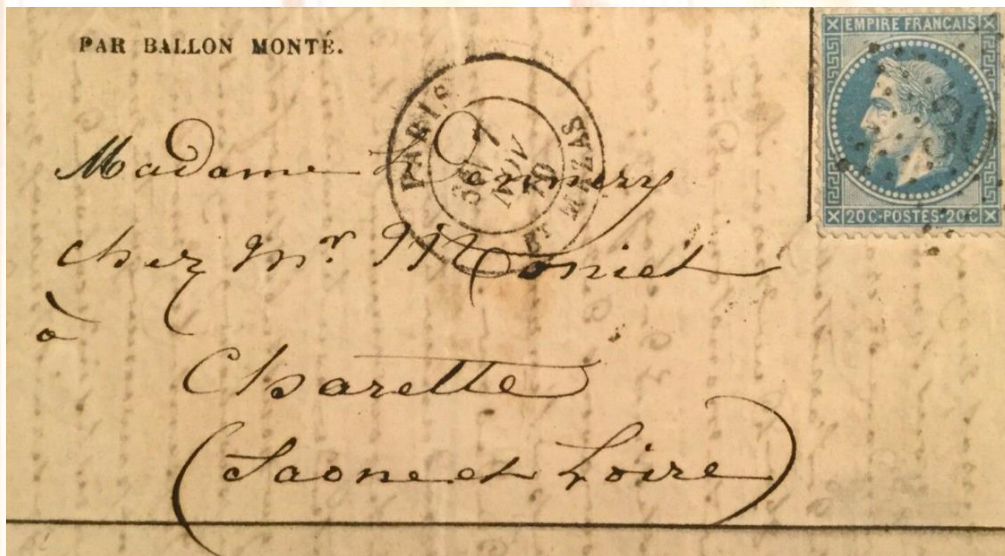 PAR BALLON MONTÉ.
EMPIRE FRANÇAIS
20 C · POSTES · 20 C
PARIS
BT MAZAS
7
NOV
70
Madame
chez Mr. Moniet
à
Charette
(Saone et Loire)